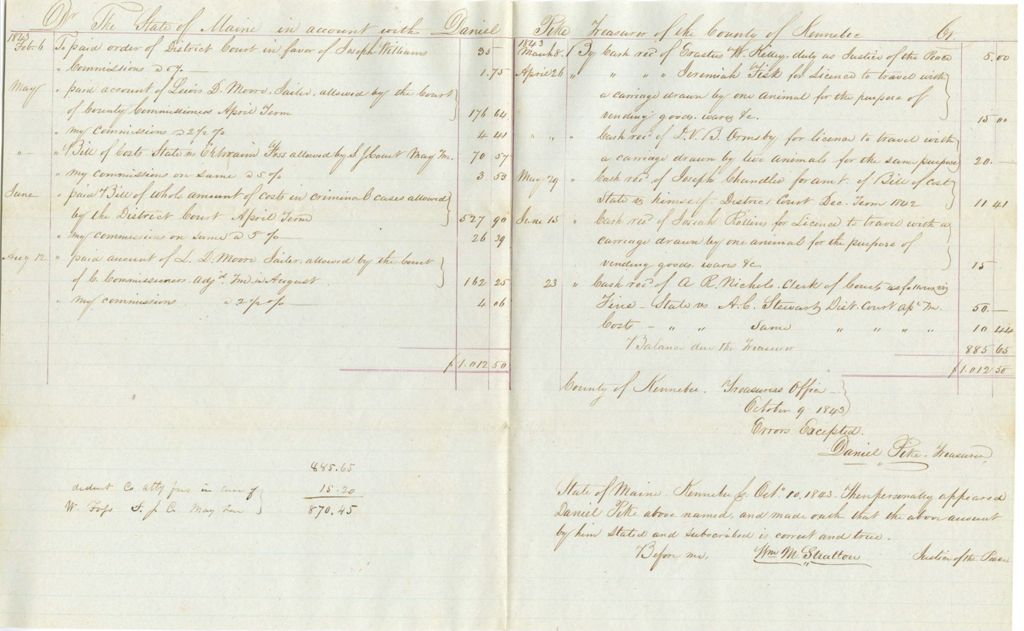 Dr The State of Maine in account with Daniel Pike Treasurer of the County of Kennebec Cr.
1843
Feb. 6 To paid order of District Court in favor of Joseph Williams 35 —
" Commissions a 5 % — 1.75
May " paid account of Lewis D. Moore, Jailer, allowed by the Court
of County Commissioners April Term 176 64
" my commissions a 2½ % 4 41
" " Bill of Costs State vs Ephraim Foss allowed by S J Court May Tm. 70 57
" my commission on same a 5 % 3 53
June " paid Bill of whole amount of costs in criminal cases allowed
by the District Court April Term 527 90
" my commissions on same a 5 % — 26 39
Aug 12 " paid amount of L. D. Moore Jailer, allowed by the Court
of C. Commissioners Adjd Tm in August 162 25
" my commission a 2½ p % — 4 06
$1.012 50
885.65
deduct Co atty fees in case of 15.20
W. Foss S. J. C. May Term 870.45
1843
March 8. By Cash recd of Erastus W. Kelley, duty as Justice of the Peace 5.00
April 26 " " " " Jeremiah Fisk for Licence to travel with
a carriage drawn by one animal for the purpose of
vending goods, wares &c. 15 00
" " " Cash recd of J. V. B. Ormsby for license to travel with
a carriage drawn by two animals for the same purpose 20. —
May 29 " Cash recd of Joseph Chandler for amt. of Bill of Cost
State vs himself — District Court Dec. Term 1842 11 41
June 15 " Cash recd of Josiah Rollins for License to travel with a
carriage drawn by one animal for the purpose of
vending goods wares &c 15 —
23 " Cash recd of A R. Nichols Clerk of Courts as follows viz
Fine — State vs A. C. Stewart, Dist. Court Apl Tm. 50. —
Costs — " " same " " " " 10 44
Balance due the Treasurer 885 65
$1.012 50
County of Kennebec. Treasurers Office —
October 9 1843
Errors Excepted.
Daniel Pike. Treasurer
State of Maine. Kennebec ss. Octr 10. 1843. Then personally appeared
Daniel Pike above named, and made oath that the above account
by him stated and subscribed is correct and true.
Before me. Wm M. Stratton Justice of the Peace